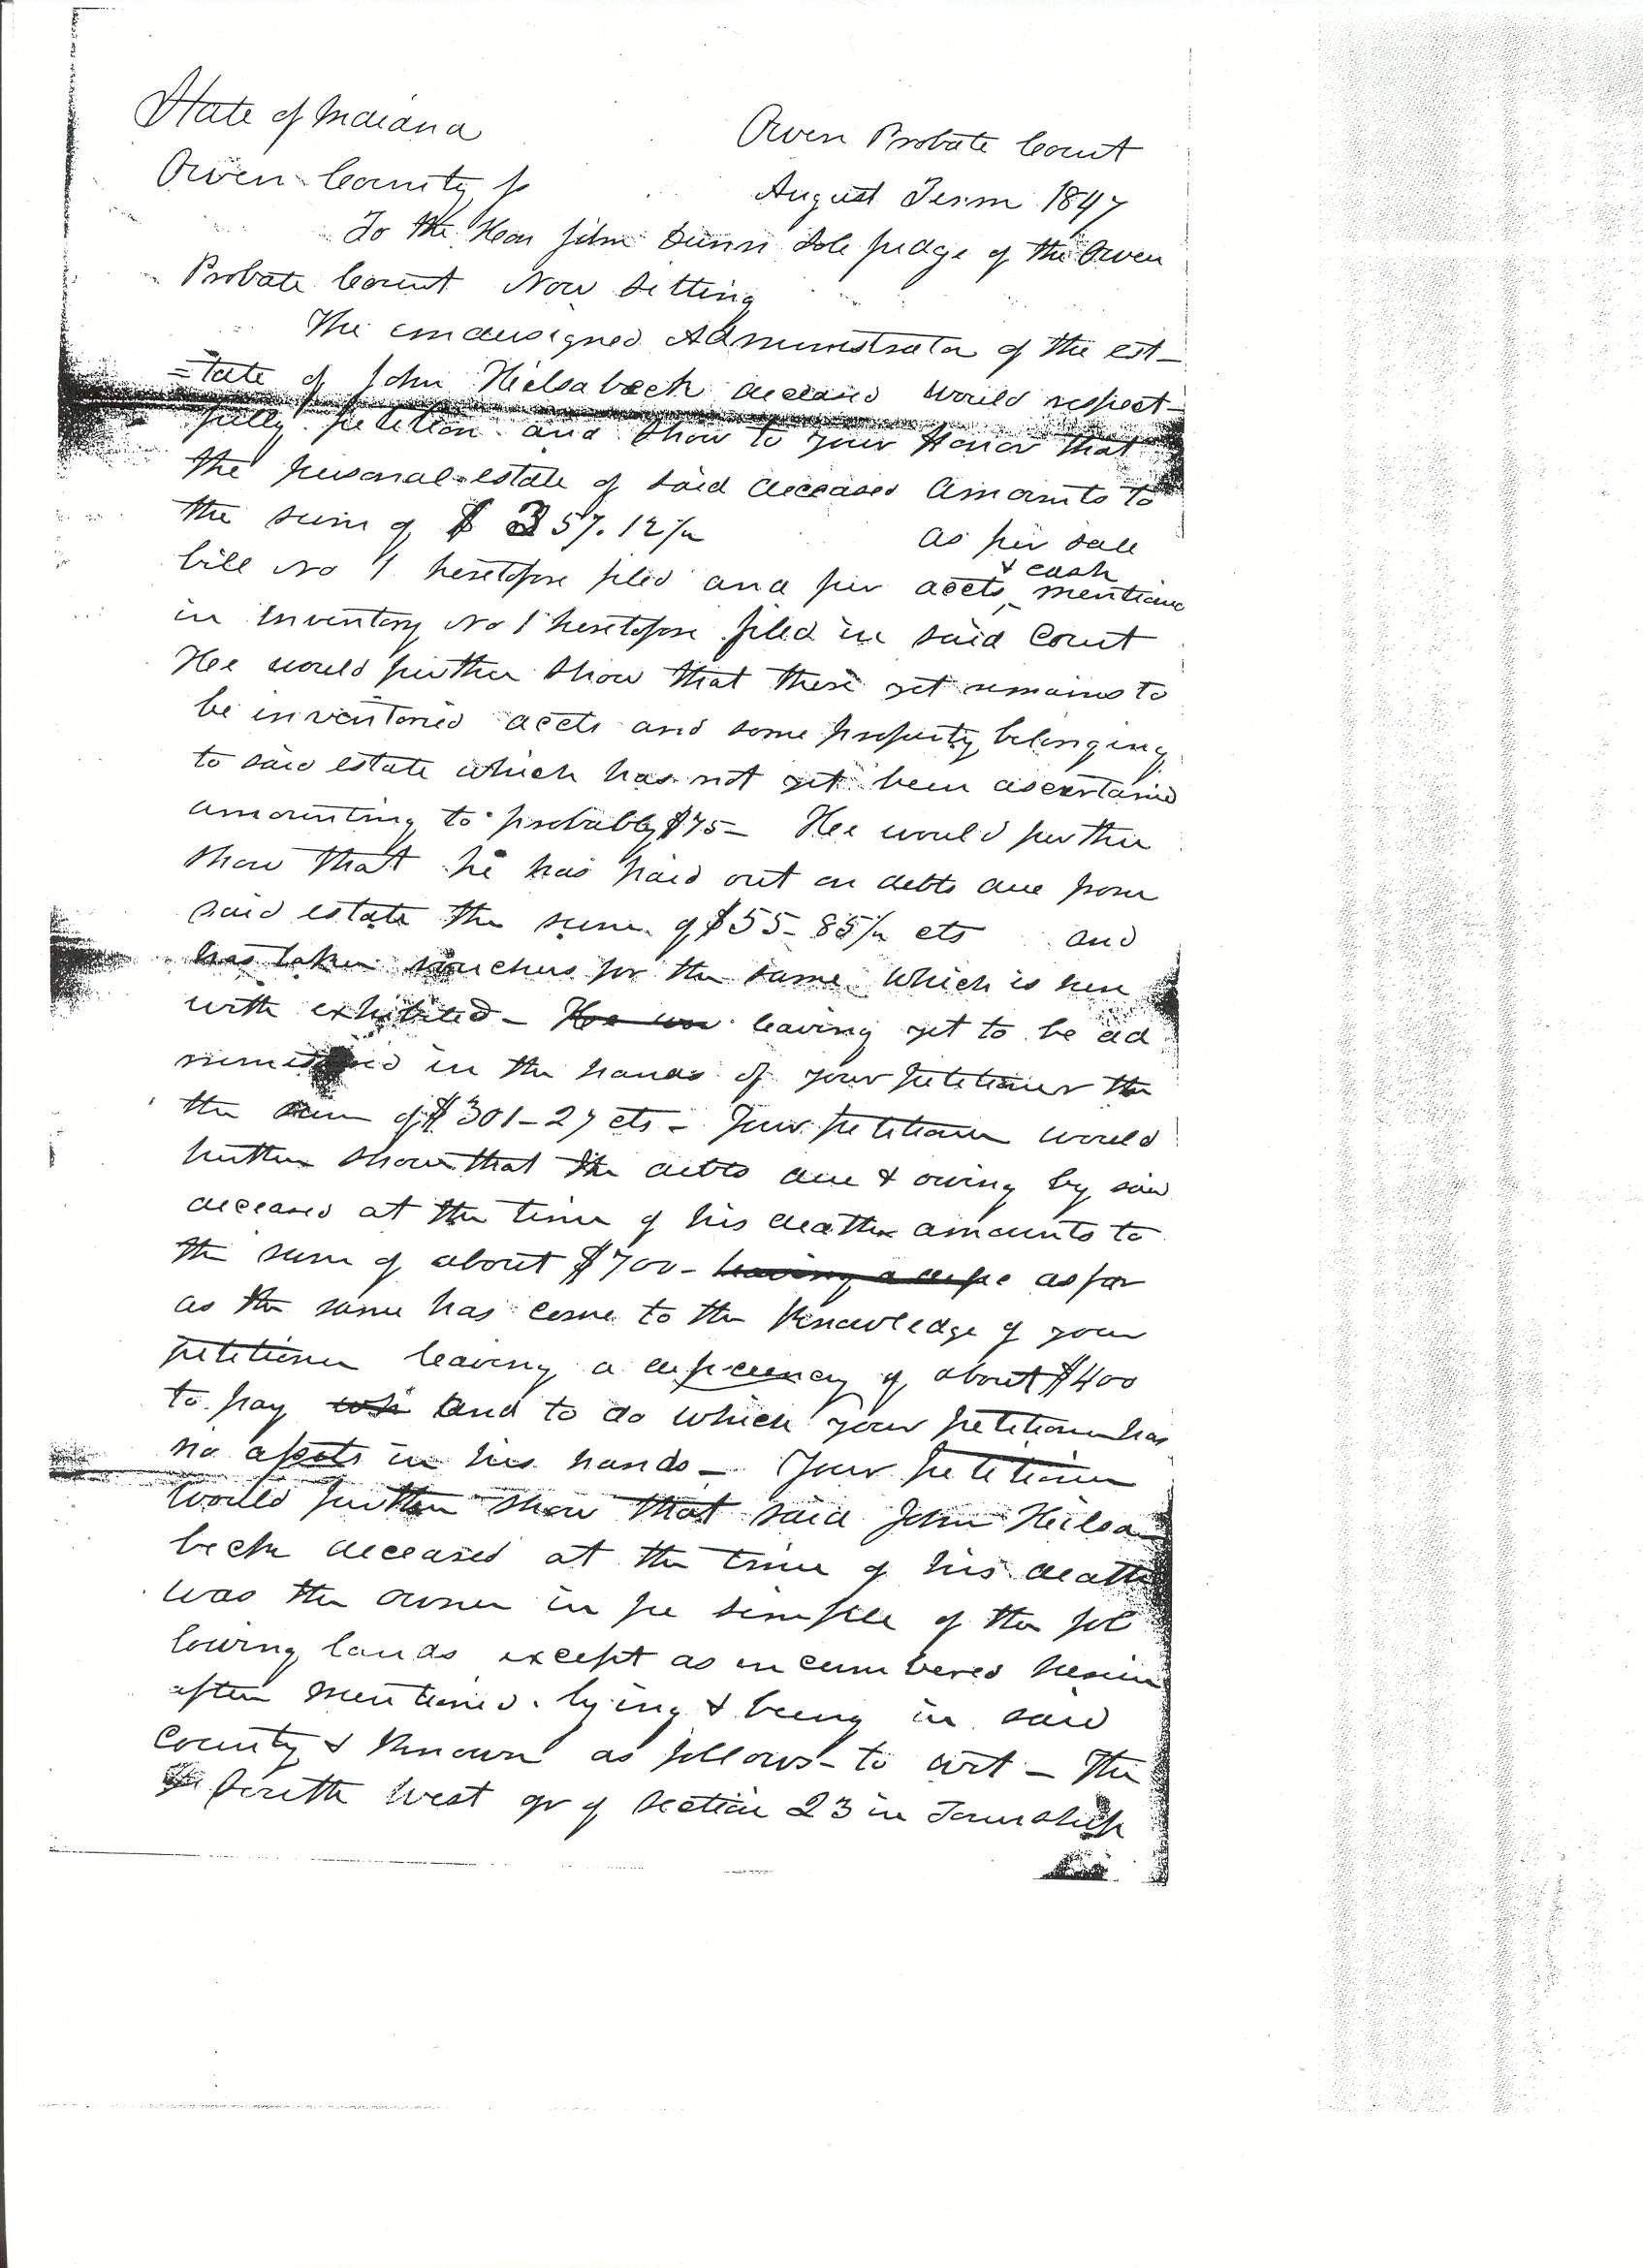 State of Indiana
Owen Probate Court
Owen County ss
August Term 1847
To the Hon John Dunn Sole judge of the Owen
Probate Court Now Sitting
The undersigned Administrator of the est-
=tate of John Hielsabeck deceased would respect-
fully petition and Show to your Honor that
the personal estate of said deceased amounts to
the sum of $ 357.12½
as per sale
bill No 1 heretofore filed and per accts & cash mentioned
in Inventory No 1 heretofore filed in said Court
He would further show that there yet remains to
be inventoried accts and some property belonging
to said estate which has not yet been ascertained
amounting to probably $75- He would further
show that he has paid out on debts due from
said estate the sum of $55-85½ cts and
has taken vouchers for the same which is here
with exhibited - He wo leaving yet to be ad
ministered in the hands of your petitioner the
the sum of $301-27 cts - Your petitioner would
further show that the debts due & owing by said
deceased at the time of his death amounts to
the sum of about $700- leaving a defic as far
as the same has come to the knowledge of your
petitioner leaving a deficiency of about $400
to pay and to do which your petitioner has
no assets in his hands - Your petitioner
would further show that said John Heilsa
beck deceased at the time of his death
was the owner in fee simple of the fol
lowing lands except as incumbered herein
after mentioned. lying & being in said
County & Known as follows - to wit - The
South West qr of Section 23 in Township